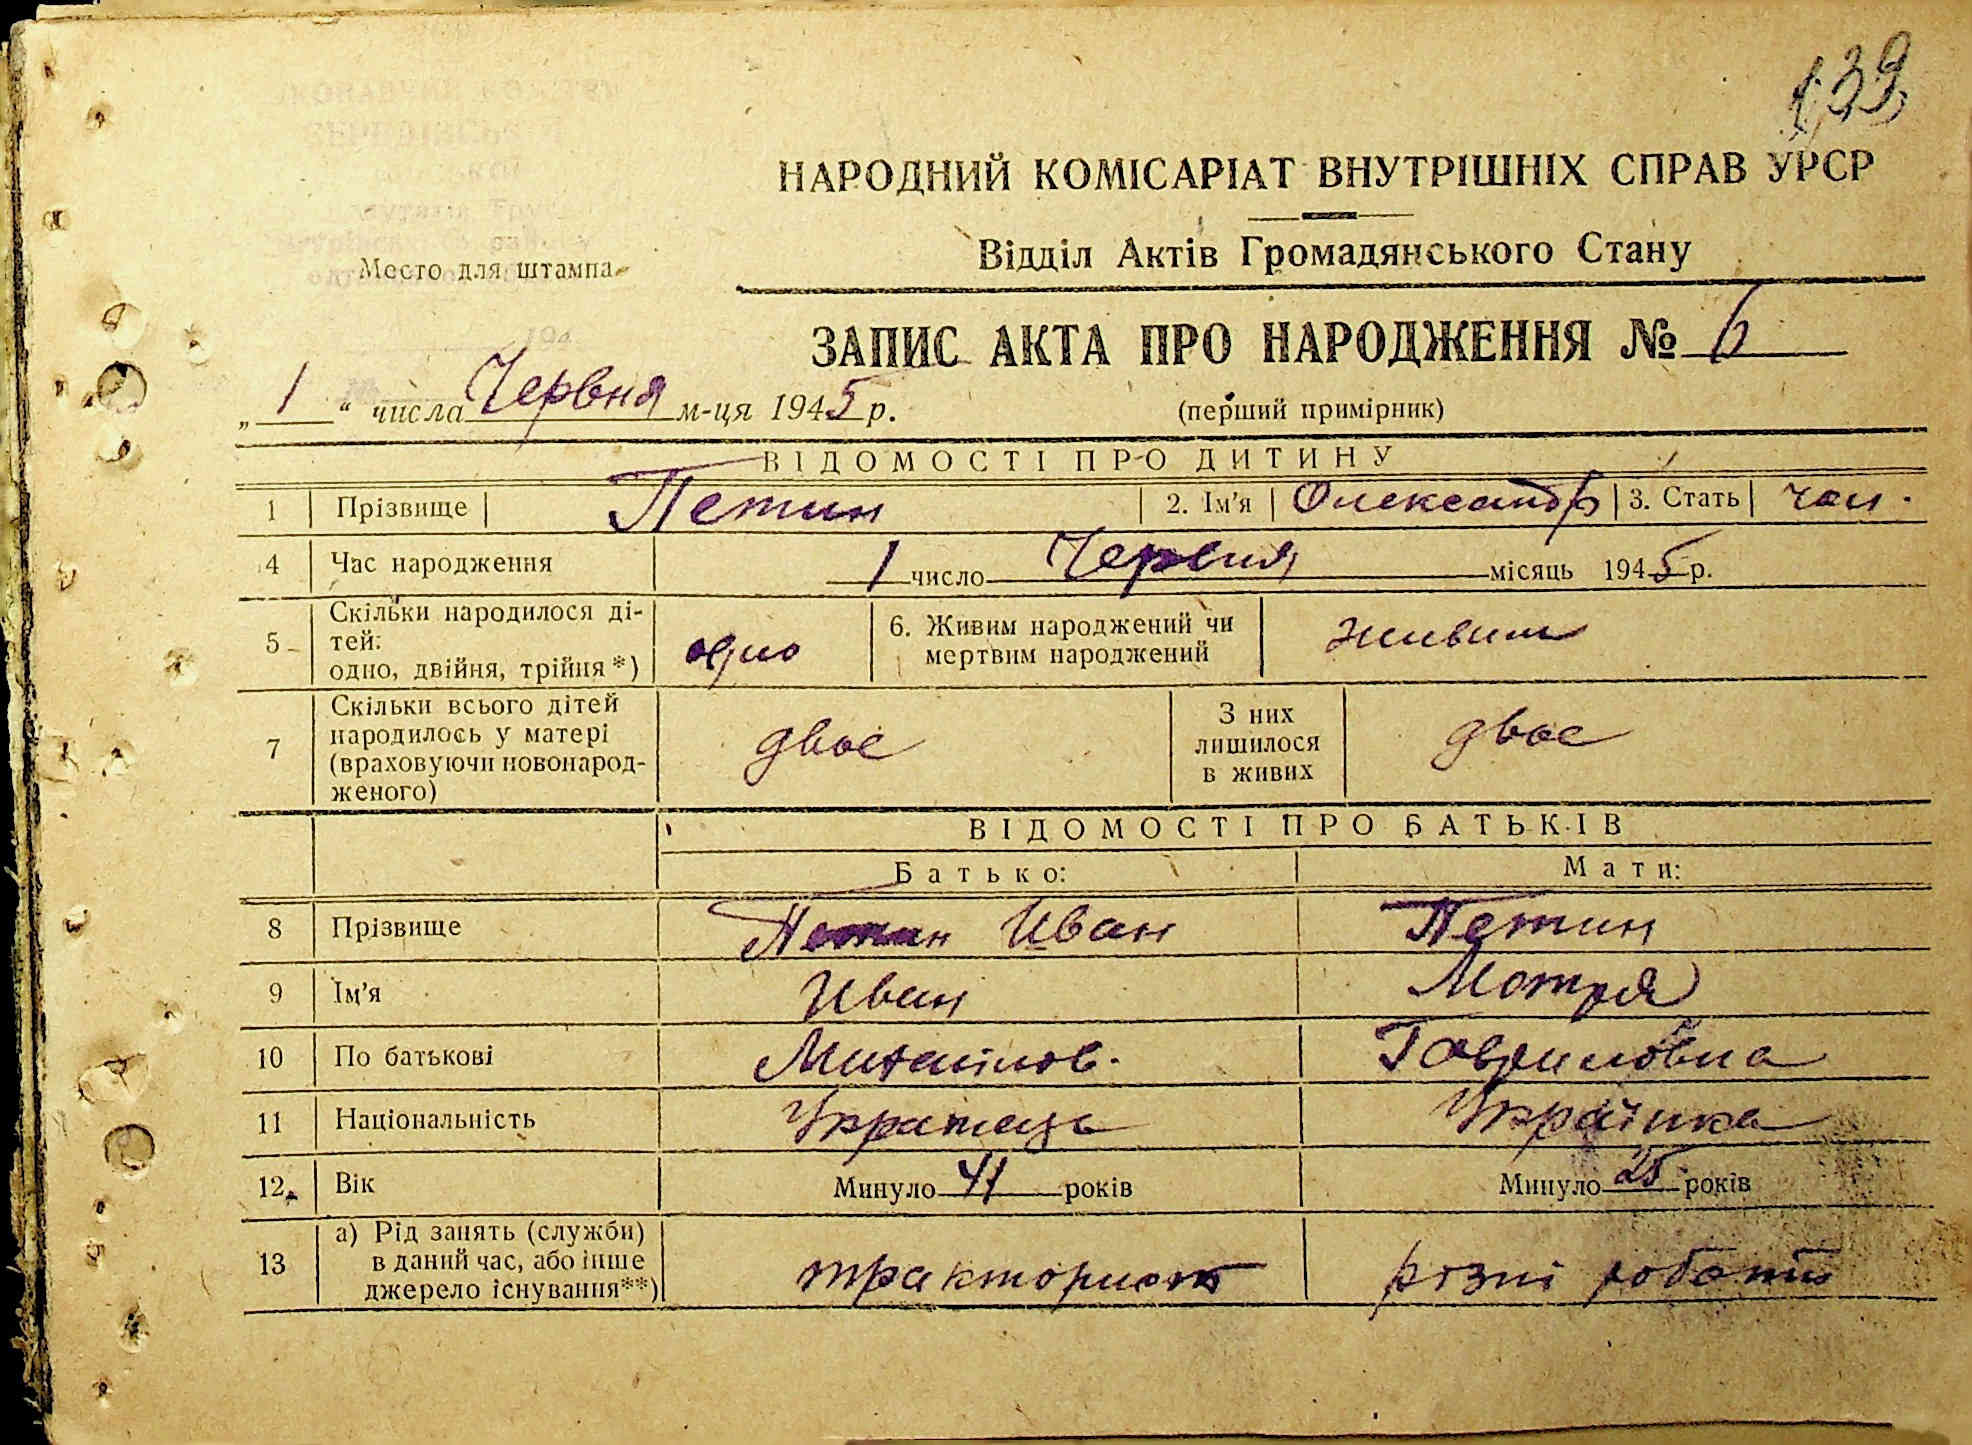 139
НАРОДНИЙ КОМІСАРІАТ ВНУТРІШНІХ СПРАВ УРСР
Відділ Актів Громадянського Стану
Место для штампа
ЗАПИС АКТА ПРО НАРОДЖЕННЯ № 6
„ 1 “ числа Червня м-ця 1945 р.
(перший примірник)
ВІДОМОСТІ ПРО ДИТИНУ
1 Прізвище Петин 2. Ім'я Олександр 3. Стать чол.
4 Час народження 1 число Червня місяць 1945 р.
5 Скільки народилося ді-
тей:
одно, двійня, трійня *) одно
6. Живим народжений чи
мертвим народжений живим
7 Скільки всього дітей
народилось у матері
(враховуючи новонарод-
женого) двоє
З них
лишилося
в живих двоє
ВІДОМОСТІ ПРО БАТЬКІВ
Батько: Мати:
8 Прізвище Петин Иван Петин
9 Ім'я Иван Мотря
10 По батькові Михайлов. Гавриловна
11 Національність Украінець Українка
12. Вік Минуло 41 років Минуло 25 років
13 а) Рід занять (служби)
в даний час, або інше
джерело існування**) тракторист різні роботи